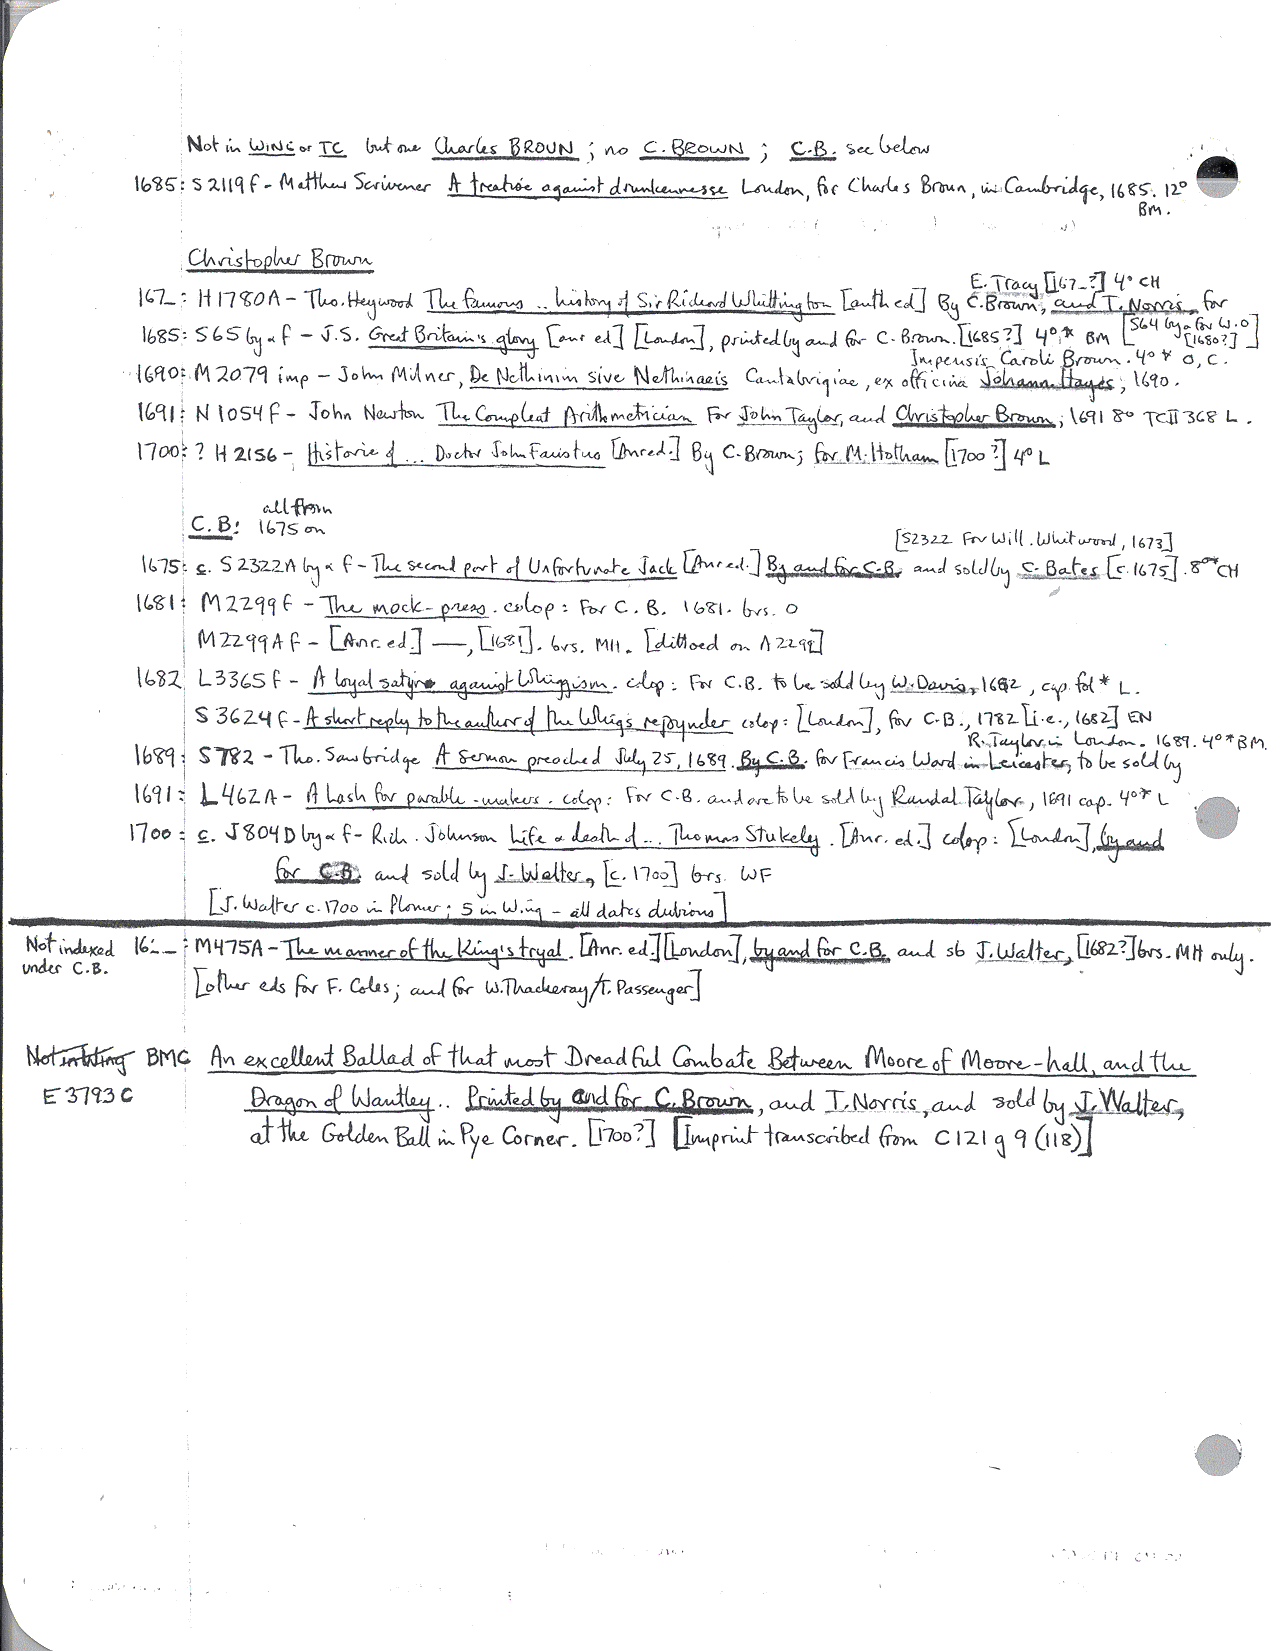 Not in WING or TC but one Charles BROUN ; no C. BROWN ; C.B. see below
1685: S2119 f - Matthew Scrivener A treatise against drunkennesse London, for Charles Broun, in Cambridge, 1685. 12°
BM.
Christopher Brown
E. Tracy [167_?] 4° CH
167_: H1780A - Tho. Heywood The famous .. history of Sir Richard Whittington [anth ed] By C. Brown, and T. Norris for
1685: S65 by & f - J.S. Great Britain's glory [anr ed] [London], printed by and for C. Brown. [1685?] 4°* BM [S64 by & for W.O
[1680?]]
Impensis Caroli Brown. 4° * O, C.
1690: M2079 imp - John Milner, De Nethinim sive Nethinaeis Cantabrigiae, ex officina Johann. Hayes, 1690.
1691: N1054 f - John Newton The Compleat Arithmetician For John Taylor, and Christopher Brown, 1691 8° TCII 368 L.
1700: ? H2156 - Historie of ... Doctor John Faustus [Anr ed.] By C. Brown; for M. Hotham [1700?] 4° L
all from
C.B: 1675 on
[S2322 For Will. Whitwood, 1673]
1675: c. S2322A by & f - The second part of Unfortunate Jack [Anr ed.] By and for C.B. and sold by C. Bates [c. 1675]. 8°* CH
1681: M2299 f - The mock-press. colop: For C.B. 1681. brs. O
M2299A f - [Anr. ed.] —, [1681]. brs. MH. [dittoed on A2299]
1682 L3365 f - A loyal satyr against Whiggism. colop: For C.B. to be sold by W. Davis, 1682, cap. fol * L.
S3624 f - A short reply to the author of the Whigs rejoynder colop: [London], for C.B., 1782 [i.e., 1682] EN
R. Taylor in London. 1689. 4° * BM.
1689: S782 - Tho. Sawbridge A sermon preached July 25, 1689. By C.B. for Francis Ward in Leicester, to be sold by
1691: L462A - A Lash for parable-makers. colop: For C.B. and are to be sold by Randal Taylor, 1691 cap. 4° * L
1700: c. J804D by & f - Rich. Johnson Life & death of ... Thomas Stukely. [Anr. ed.] colop: [London], by and
for C.B. and sold by J. Walter, [c. 1700] brs. WF
[J. Walter c. 1700 in Plomer; 5 in Wing - all dates dubious]
Not indexed 16__: M475A - The manner of the King's tryal. [Anr. ed.] [London], by and for C.B. and sb J. Walter, [1682?] brs. MH only.
under C.B.
[other eds for F. Coles; and for W. Thackeray/T. Passenger]
Not in Wing BMC An excellent Ballad of that most Dreadful Combate Between Moore of Moore-hall, and the
E3793C Dragon of Wantley .. Printed by and for C. Brown, and T. Norris, and sold by J. Walter,
at the Golden Ball in Pye Corner. [1700?] [Imprint transcribed from C121 g 9 (118)]